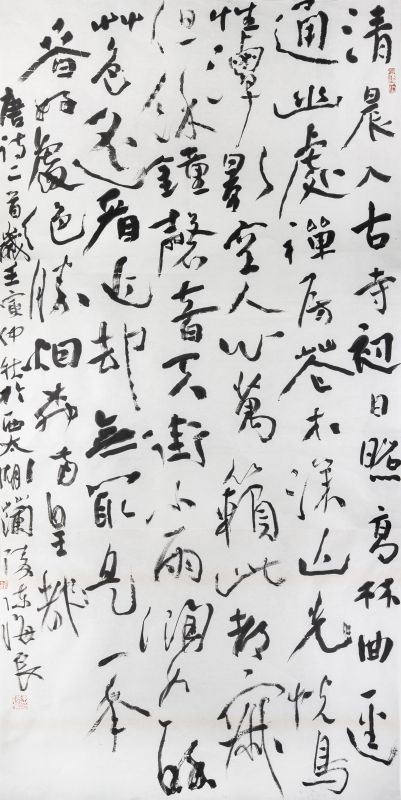 清晨入古寺初日照高林曲逕
通幽處禪房花木深山光悦鳥
性潭影空人心萬籟此都寂
但餘鐘磬音天街小雨潤如酥
艸色遥看近却無最是一年
春好處絕勝烟柳滿皇都
唐詩二首歲壬寅仲秋於西太湖蘭陵陳海良